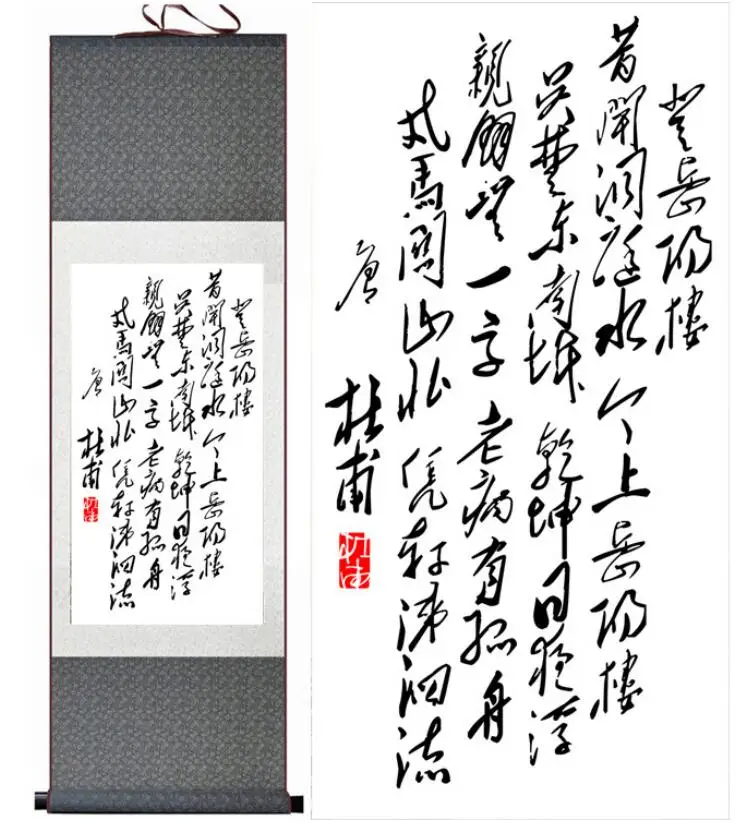 登岳阳楼
昔聞洞庭水 今上岳阳楼
吴楚东南坼 乾坤日夜浮
親朋無一字 老病有孤舟
戎馬關山北 凭轩涕泗流
唐
杜甫
登岳阳楼
昔聞洞庭水 今上岳阳楼
吴楚东南坼 乾坤日夜浮
親朋無一字 老病有孤舟
戎馬關山北 凭轩涕泗流
唐
杜甫